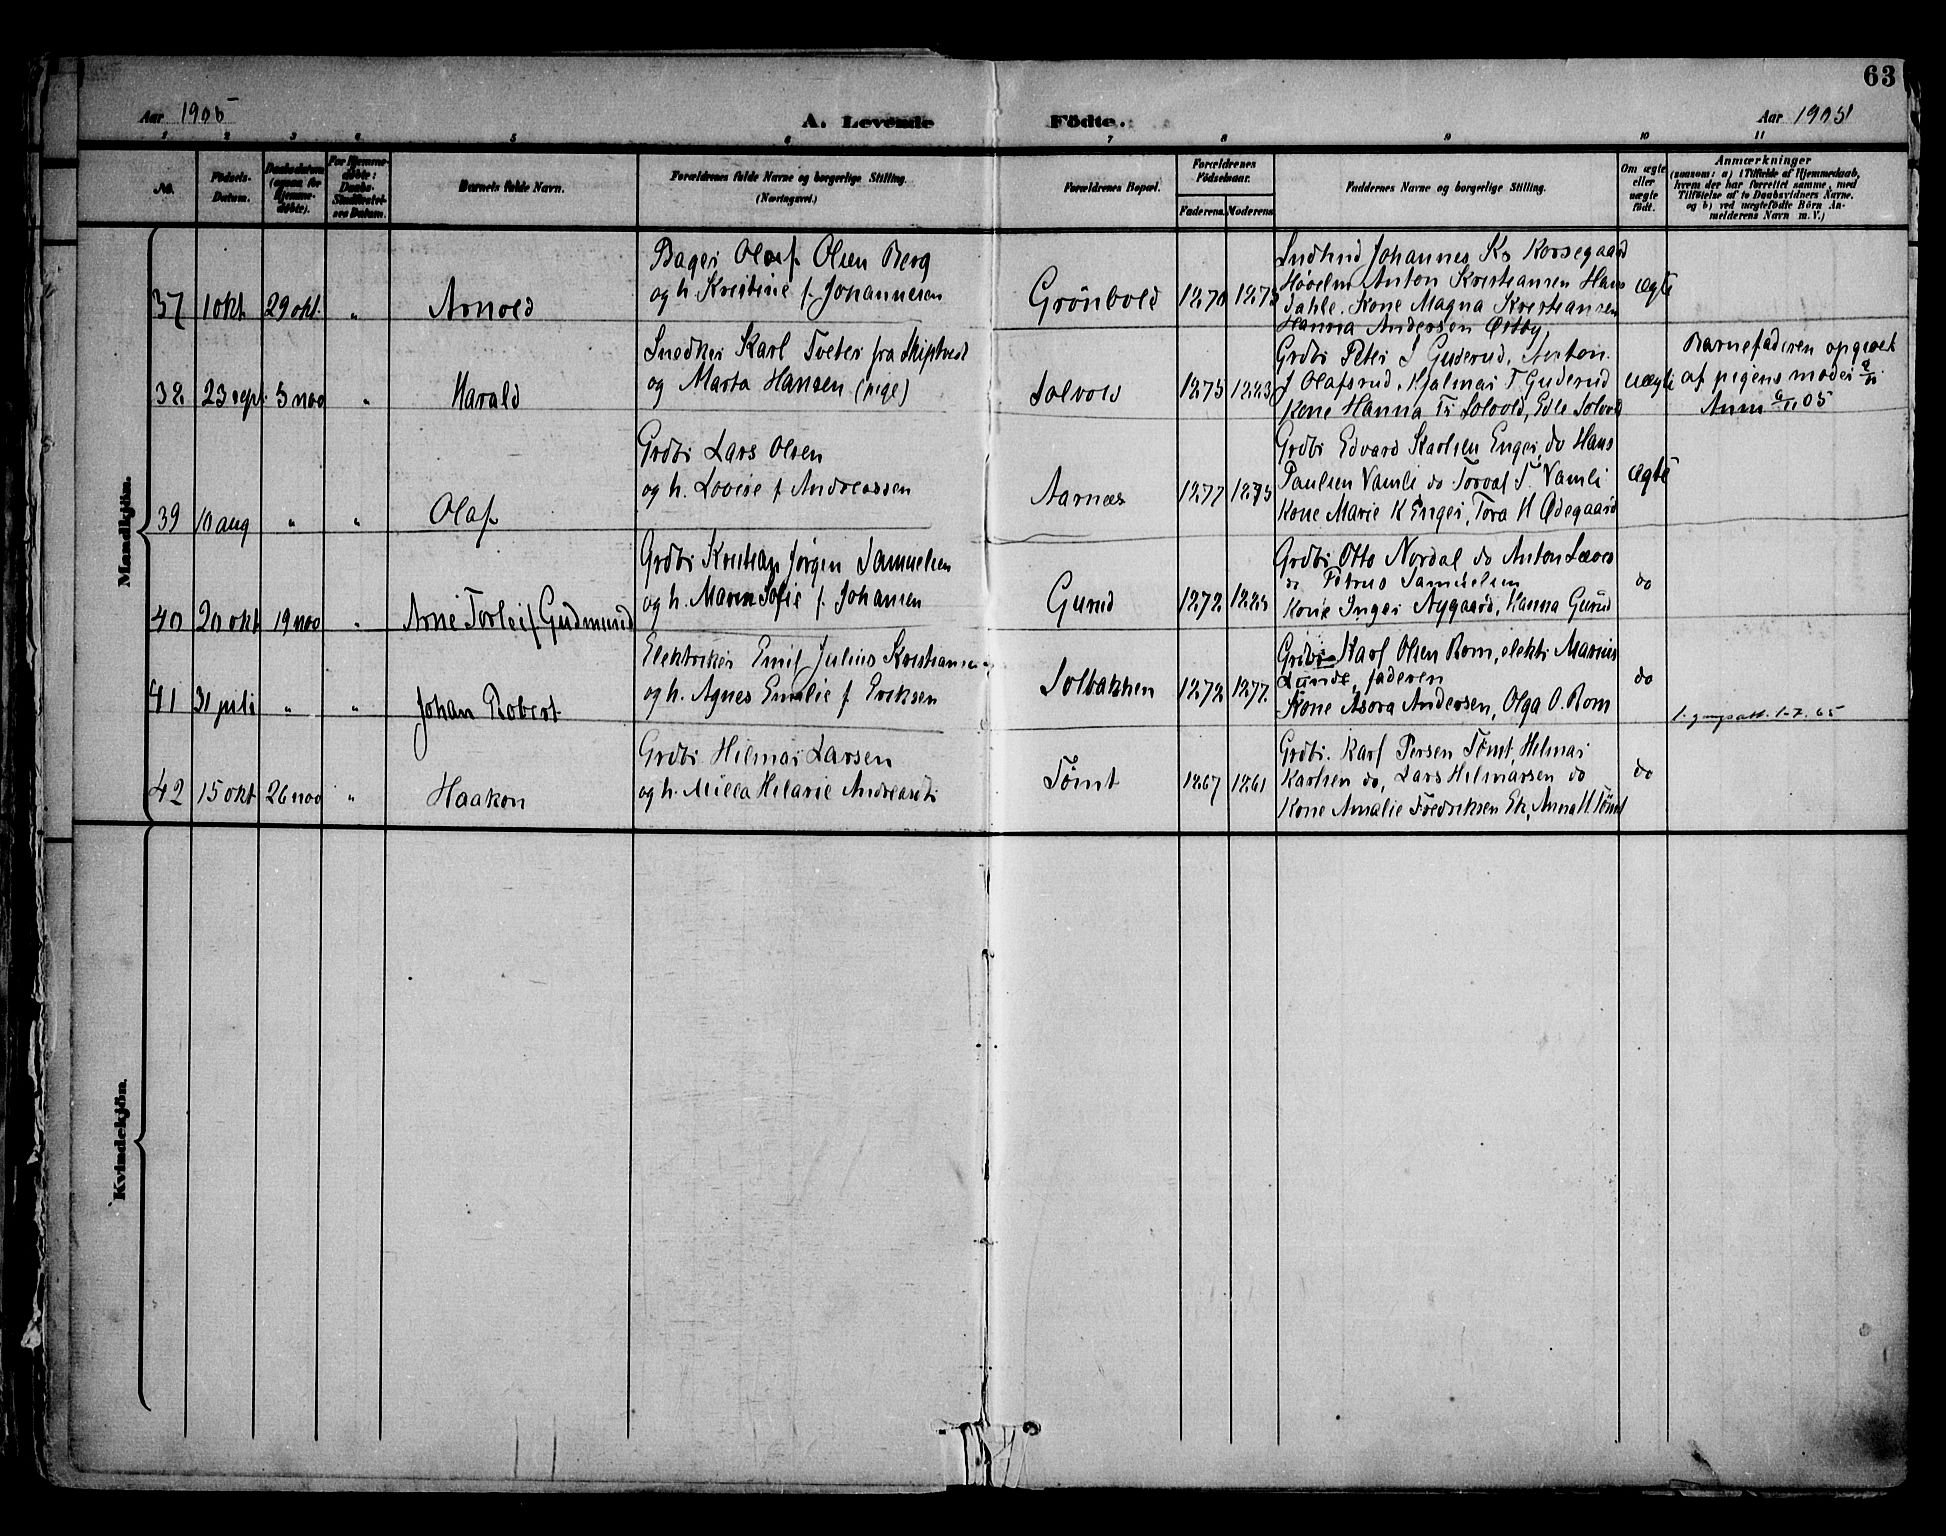 63
Aar 1905
A. Levende Födte.
Aar 1905
1 2 3 4 5 6 7 8 9 10 11
No.
Födsels-Datum.
Daabsdatum (ogsaa for Hjemmedöbte).
For Hjemmedöbte: Daabs-Stadfæstelses Datum.
Barnets fulde Navn.
Forældrenes fulde Navne og borgerlige Stilling.
(Næringsvei.)
Forældrenes Bopæl.
Forældrenes Födselsaar.
Faderens. Moderens.
Faddernes Navne og borgerlige Stilling.
Om ægte eller uægte født.
Anmærkninger
(saasom: a) i Tilfælde af Hjemmedaab,
hvem der har forrettet samme, med
Tilföielse af to Daabsvidners Navne,
og b) ved uægtefödte Börn An-
melderens Navn m. V.)
Mandkjön.
37 1 okt 29 okt. " Arnold
Bager Olaf Olsen Berg
og h. Kristine f. Johannesen
Grönbold 1870 1873
Johannes Ks Korsegaard
Anton Kristiansen Haus
dahle. Kone Magna Kristiansen
Hanna Andersen Østby
ægte
38 23 sept. 5 nov " Harald
Snedker Karl Tveter fra Skiptvedt
og Marta Hansen (pige)
Solvold 1875 1883
Grdbr Peter J Guderud, Anton
J Olafsrud, Hjalmar T Guderud
Kone Hanna Tr Solvold, Edle Solvold
uægte
Barnefaderen opgivet
af pigens moder
Anm 6/11 05
39 10 aug " " Olaf
Grdbr Lars Olsen
og h. Lovise f Andreassen
Aarnæs 1877 1875
Grdbr Edvard Karlsen Enger, do Hans
Paulsen Vamli do Torval T. Vamli
Kone Marie K Enger, Tora H Ødegaard
ægte
40 20 okt 19 nov " Arne Torleif Gudmund
Grdbr Kristian Jørgen Samuelsen
og h. Maren Sofie f. Johansen
Gurud 1872 1885
Grdbr Otto Nordal do Anton
do Petrus Samuelsen
Kone Inger Nygaard, Hanna Gurud
do
41 31 juli " " Johan Robert
Elektriker Emil Julius Kristiansen
og h. Agnes Emilie f Eriksen
Solbakken 1872 1877
Grdbr Karl Olsen Rom, elektr Marius
Lunde, faderen
Kone Asora Andersen, Olga O. Rom
do
1.-7. 65
42 15 okt 26 nov " Haakon
Grdbr Hilmar Larsen
og h. Milla Helarie Andreasdtr
Tömt 1867 1861
Grdbr. Karl Persen Tömt, Helmar
Karlsen do, Lars Hilmarsen do
Kone Amalie Fredriksen Ek, Anna H. Tömt
do
Kvindekjön.